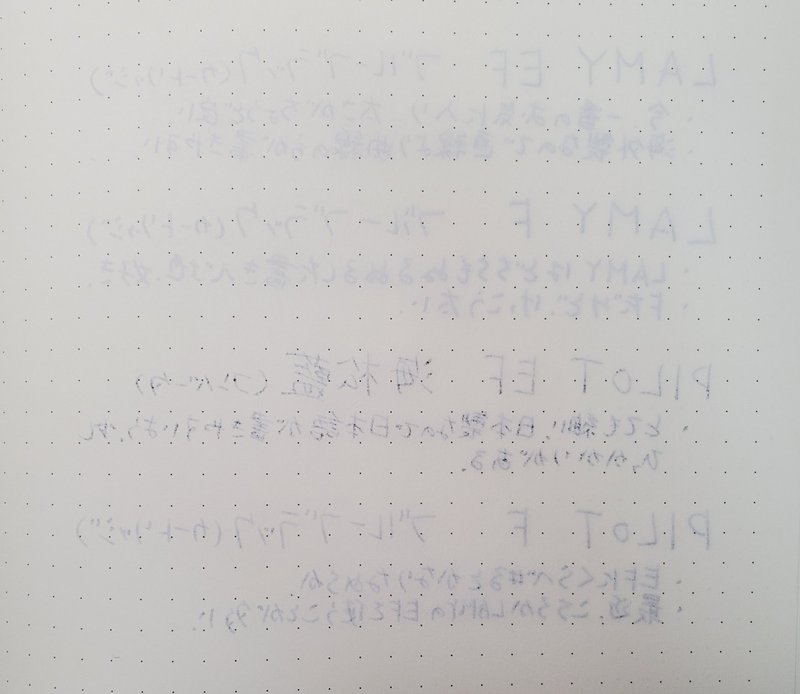 LAMY EF ブルーブラック(カートリッジ)
・今、一番のお気に入り。太さがちょうど良い
・海外製なので直線より曲線のが書きやすい
LAMY F ブルーブラック(カートリッジ)
・LAMYはどちらもぬるぬるした書き心地で好き。
・Fだけど、けっこう太い。
PILOT EF 海松藍(コンバータ)
・とても細い。日本製なので日本語が書きやすいよう。少し
ひっかかりがある。
PILOT F ブルーブラック(カートリッジ)
・EFにくらべるとかなりなめらか
・最近、こちらかLAMYのEFを使うことが多い